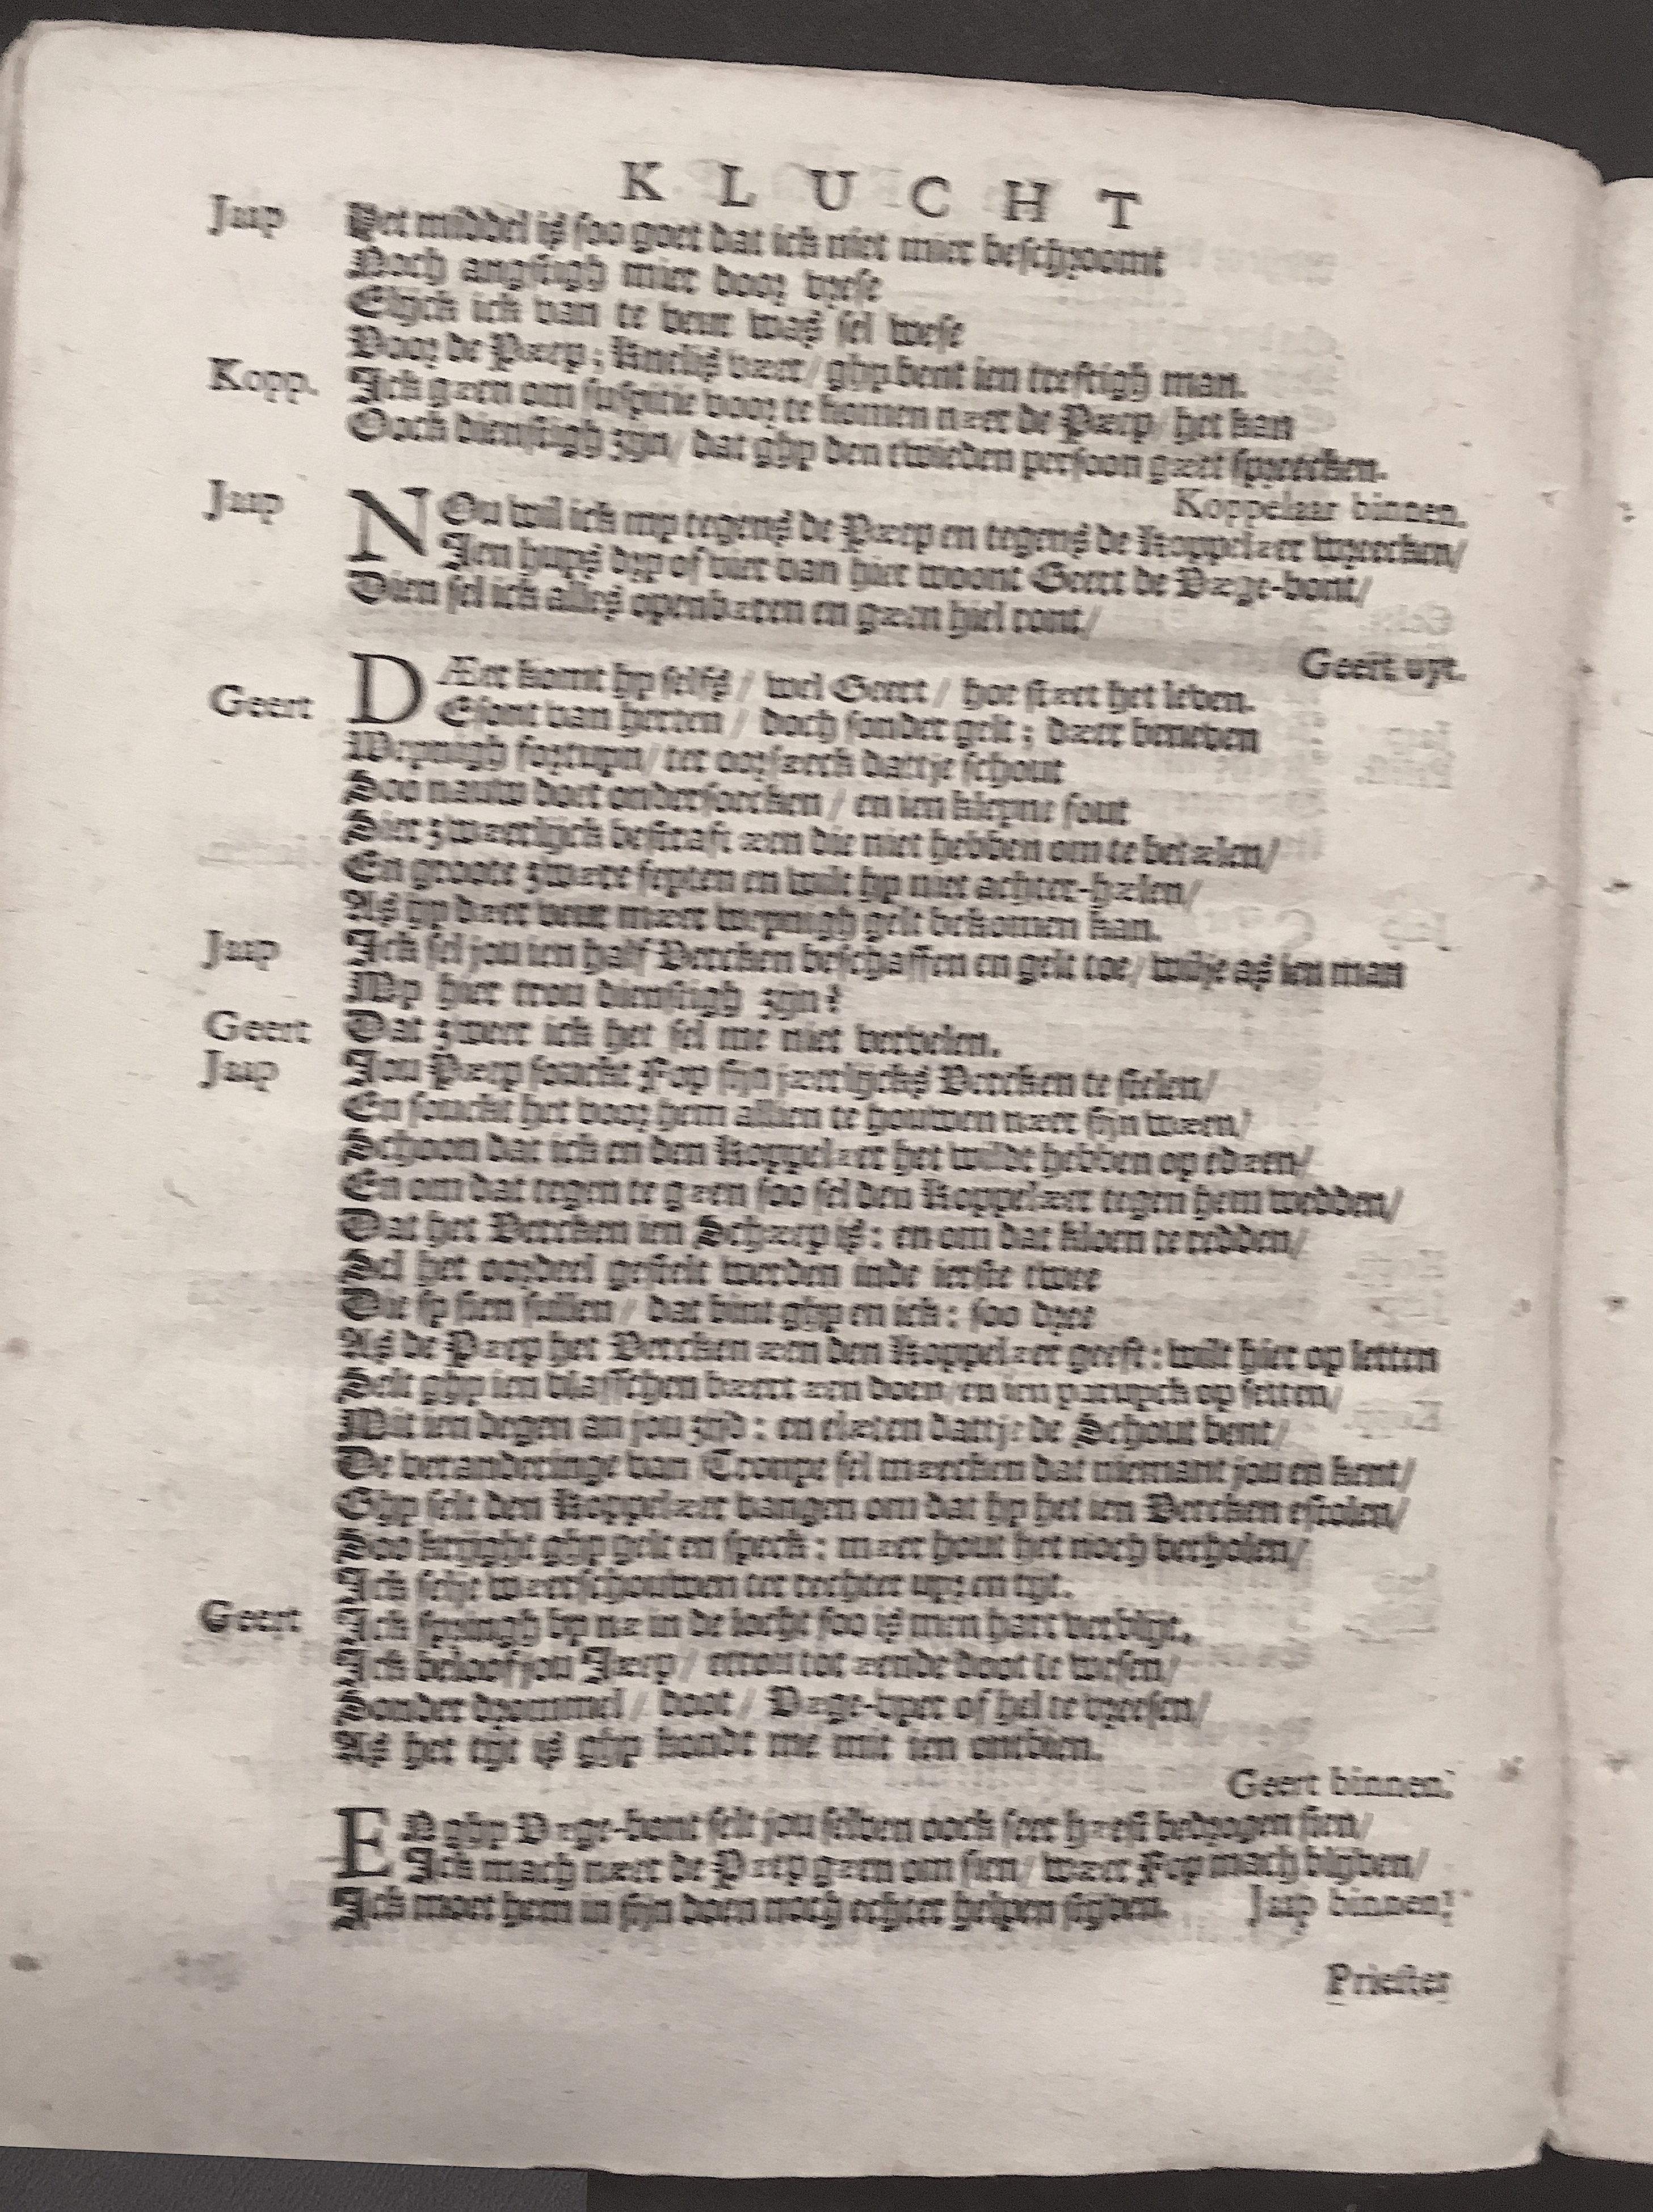 KLUCHT
Jaap Het middel is soo goet dat ick niet mier beschroomt
Noch angstigh mier voor vrese
Elyck ick van te veur was sel wese
Voor de Pæep; Knelis vaer/ ghy bent ien treftigh man.
Kopp. Ick gæen om suspitie voor te komen næer de Pæep/ het kan
Oock dienstigh zyn/ dat ghy den twieden persoon gæet spreecken.
Koppelaar binnen.
Jaap NOu wil ick my tegens de Pæep en tegens de Koppelæer wreecken/
Ien huys dry of vier van hier woont Geert de Væge-bont/
Dien sel ick alles openbæren en gæen hiel ront/
Geert uyt.
DÆer komt hy selfs/ wel Geert/ hoe stæet het leven.
Geert Esont van herten/ doch sonder gelt; dæer beneven
Weynigh fortuyn/ ter oorsæeck dattje schout
Soo nauw doet ondersoecken/ en ien kleyne fout
Sier zwæerlijck bestraft æen die niet hebben om te betælen/
En groote zwære feyten en wilt hy niet achter-hælen/
As hy dæer veur mæer weynigh gelt bekomen kan.
Jaap Ick sel jou ien half Vercken beschaffen en gelt toe/ wilje as ien man
My hier trou dienstigh zyn?
Geert Dat zweer ick het sel me niet vervelen.
Jaap Jou Pæep soeckt Fop sijn jæerlijcks Vercken te stelen/
En soeckt het voor hem allien te houwen næer sijn wæen/
Schoon dat ick en den Koppelæer het wilde hebben op edæen/
En om dat tegen te gæen soo sel den Koppelæer tegen hem wedden/
Dat het Vercken ien Schæep is: en om dat kloen te redden/
Sel het oordeel gestelt werden inde ierste twee
Die sy sien sullen/ dat bint ghy en ick: soo dree
As de Pæep het Vercken æen den Koppelæer geeft: wilt hier op letten
Selt ghy ien valsschen bæert æen doen/ en ien paruyck op setten/
Mit ien degen an jou zijd: en elæten dattje de Schout bent/
De veranderinge van Trouye sel mæecken dat niemant jou en kent/
Ghy selt den Koppelæer vangen om dat hy het ien Vercken estolen/
Soo krijght ghy gelt en speck: mæer hout het noch verholen/
Ick selje wæerschouwen ter rechter uyr en tyt.
Geert Ick springh by næ in de locht soo is men hart verblyt.
Ick beloof jou Jæep/ etrou tot ænde doot te wesen/
Sonder drommel/ doot/ Væge-vyer of hel te vreesen/
As het tyt is ghy hondt me mit ien ontbien.
Geert binnen.
EN ghy Væge-bont selt jou selven oock seer hæest bedrogen sien/
Ick mach næer de Pæep gæen om sien/ wæer Fop mach blyven/
Ick moet hem in sijn doen noch echter helpen styven. Jaap binnen.
Priester